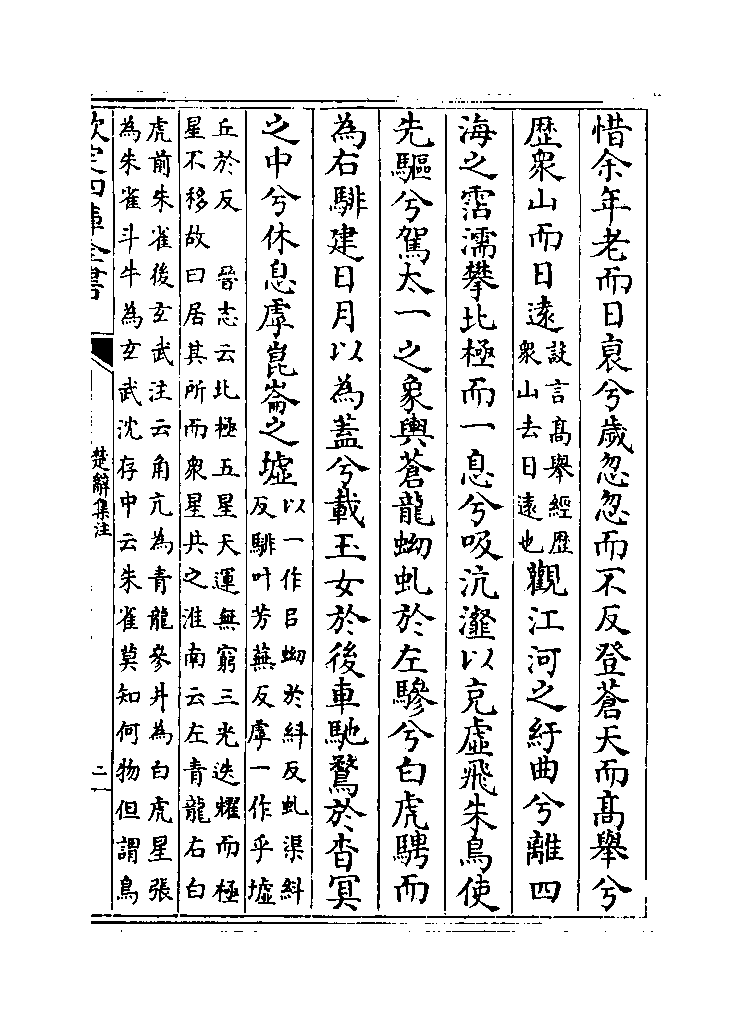 惜余年老而日衰兮歲忽忽而不反登蒼天而髙舉兮
歴衆山而日遠設言髙舉經歴
衆山去日遠也觀江河之紆曲兮離四
海之霑濡攀北極而一息兮吸沆瀣以充虛飛朱鳥使
先驅兮駕太一之象輿蒼龍蚴虬於左驂兮白虎騁而
為右騑建日月以為蓋兮載玉女於後車馳騖於杳冥
之中兮休息虖崑崙之墟以一作㠯蚴於糾反虬渠糾
反騑叶芳蕪反虖一作乎墟
丘於反　晉志云北極五星天運無窮三光迭耀而極
星不移故曰居其所而衆星共之淮南云左青龍右白
虎前朱雀後玄武注云角亢為青龍參井為白虎星張
為朱雀斗牛為玄武沈存中云朱雀莫知何物但謂鳥
欽定四庫全書
楚辭集注